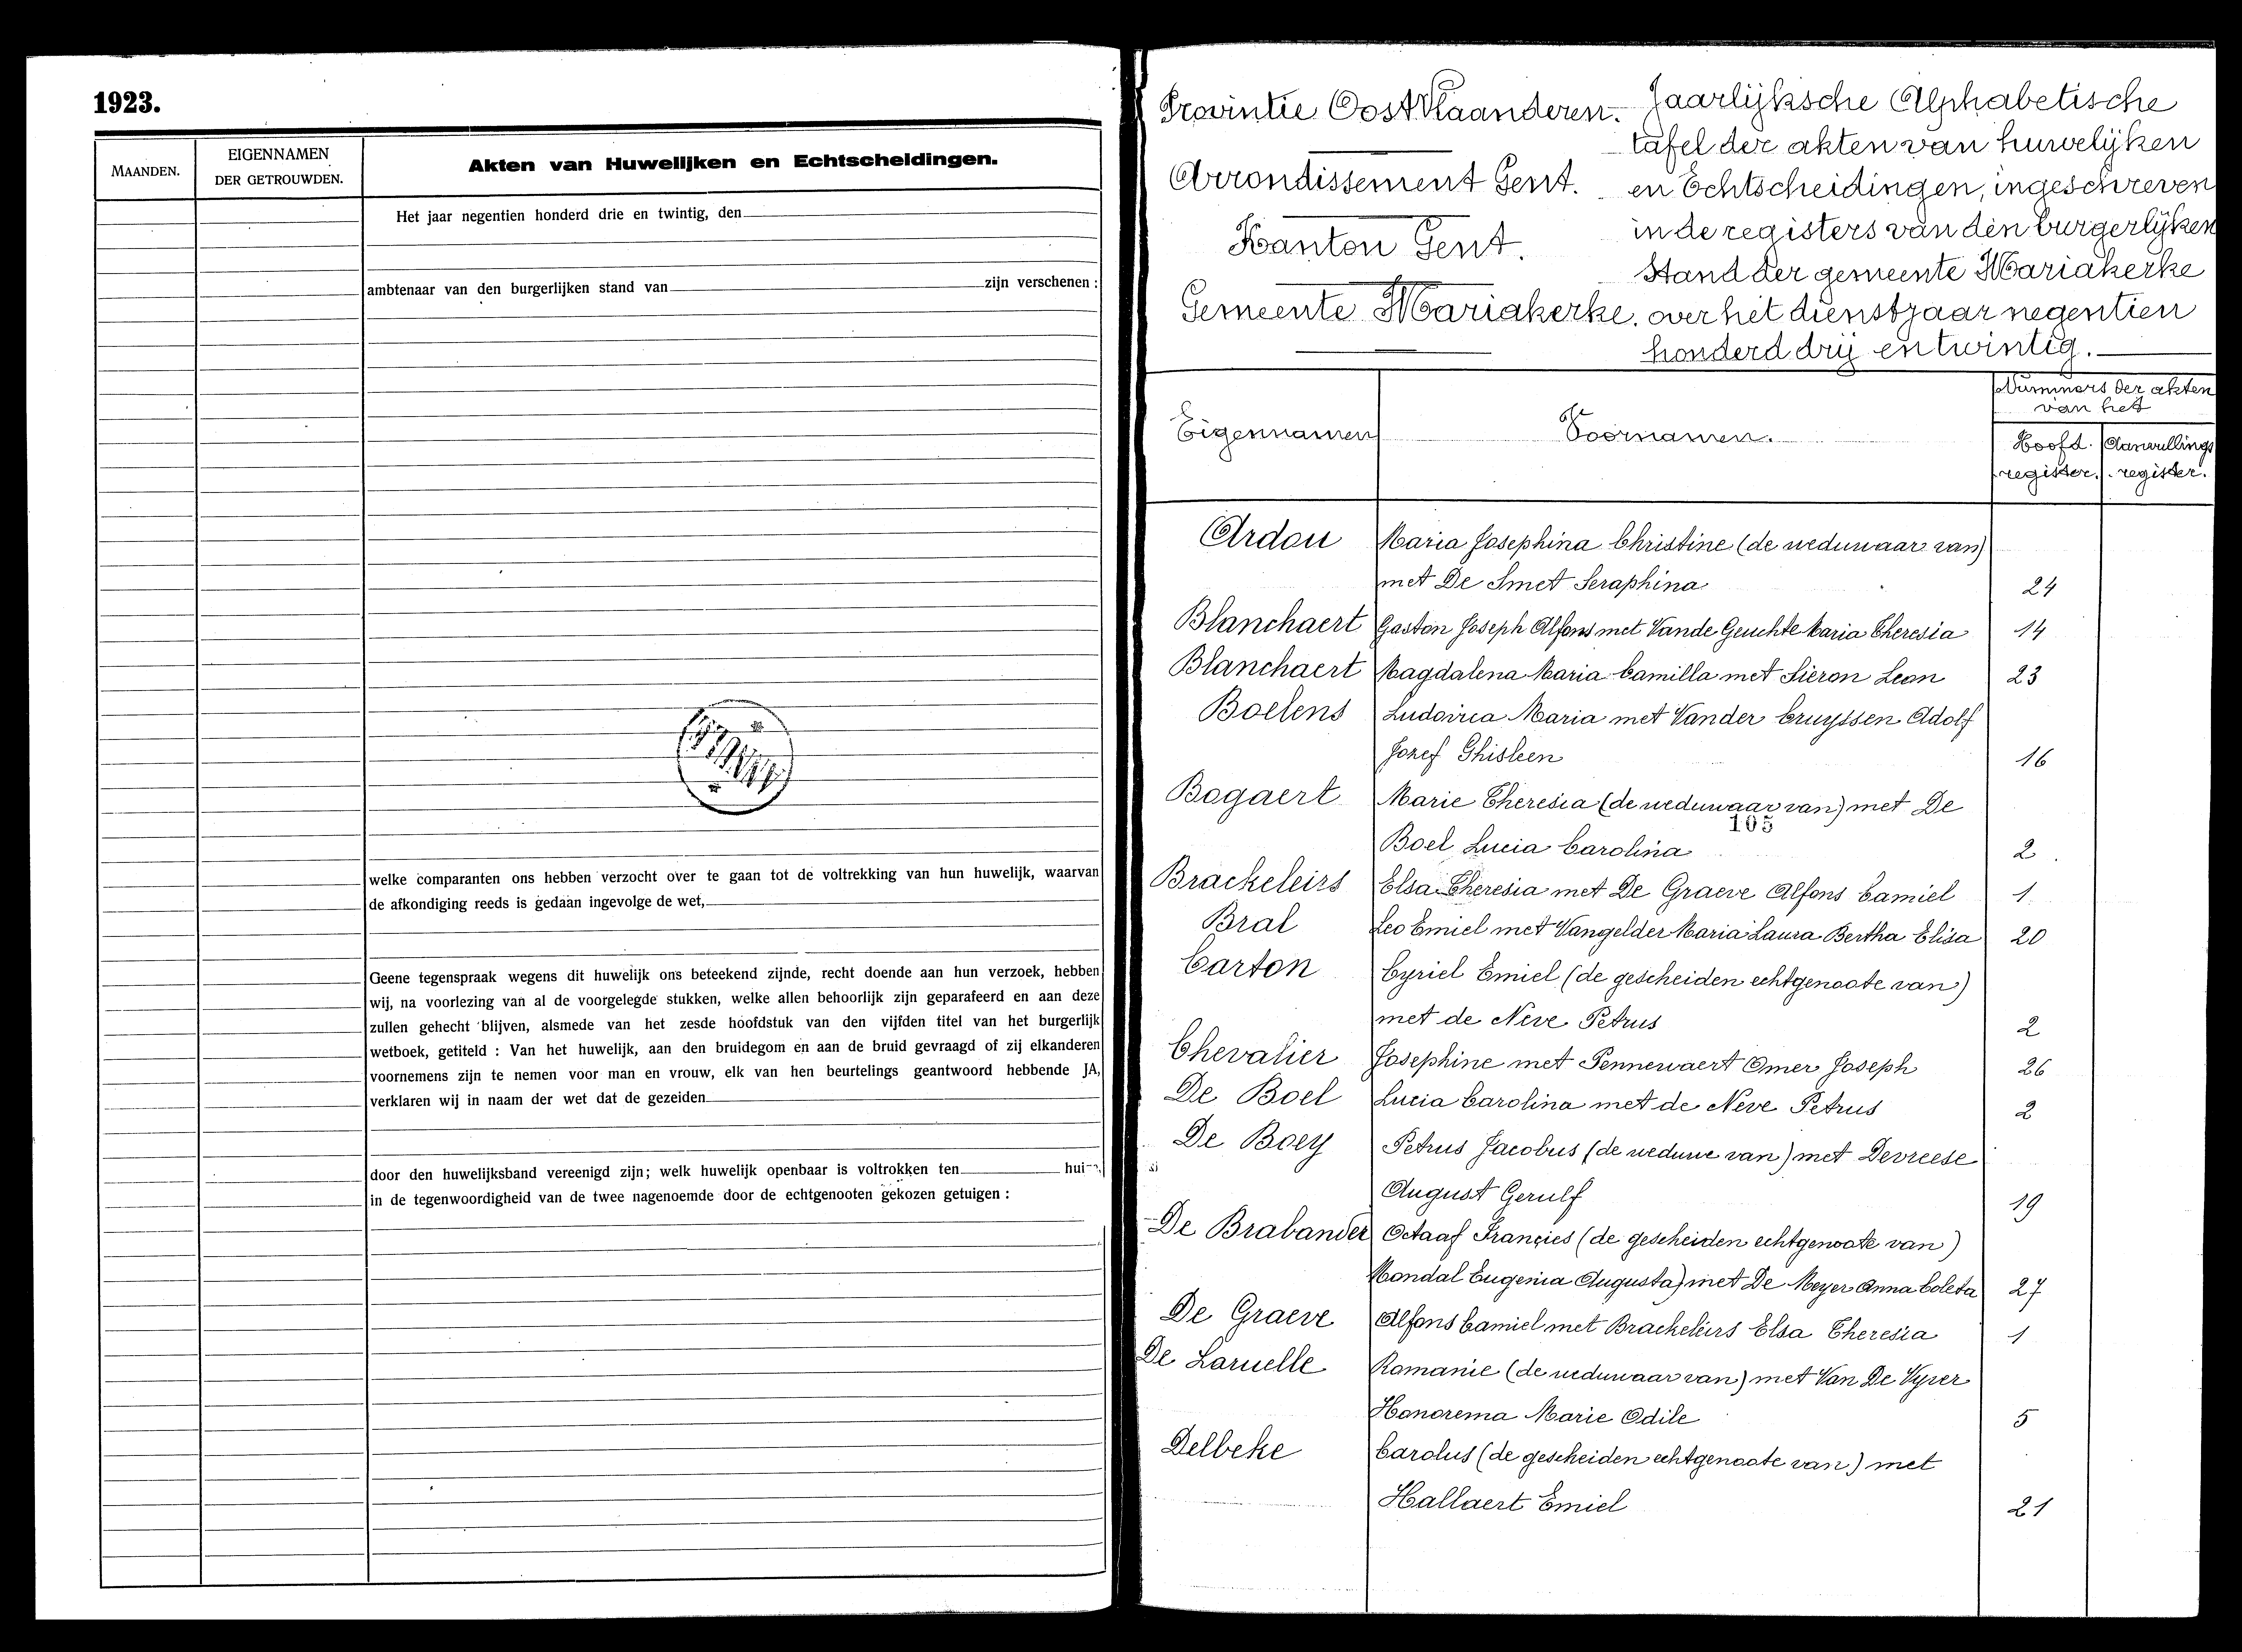 1923.
MAANDEN.
EIGENNAMEN
DER GETROUWDEN.
Akten van Huwelijken en Echtscheidingen.
Het jaar negentien honderd drie en twintig, den
ambtenaar van den burgerlijken stand van zijn verschenen :
welke comparanten ons hebben verzocht over te gaan tot de voltrekking van hun huwelijk, waarvan
de afkondiging reeds is gedaan ingevolge de wet,
Geene tegenspraak wegens dit huwelijk ons beteekend zijnde, recht doende aan hun verzoek, hebben
wij, na voorlezing van al de voorgelegde stukken, welke allen behoorlijk zijn geparafeerd en aan deze
zullen gehecht blijven, alsmede van het zesde hoofdstuk van den vijfden titel van het burgerlijk
wetboek, getiteld : Van het huwelijk, aan den bruidegom en aan de bruid gevraagd of zij elkanderen
voornemens zijn te nemen voor man en vrouw, elk van hen beurtelings geantwoord hebbende JA,
verklaren wij in naam der wet dat de gezeiden
door den huwelijksband vereenigd zijn; welk huwelijk openbaar is voltrokken ten hui
in de tegenwoordigheid van de twee nagenoemde door de echtgenooten gekozen getuigen :
Provintie Oost Vlaanderen.
Arrondissement Gent.
Kanton Gent.
Gemeente Mariakerke.
Jaarlijksche Alphabetische
tafel der akten van huwelijken
en Echtscheidingen, ingeschreven
in de registers van den burgerlijken
Stand der gemeente Mariakerke
over het dienstjaar negentien
honderd drij en twintig.
Eigennamen
Voornamen.
Nummers der akten
van het
Hoofd. Aanvullings
register. register.
Ardou Maria Josephina Christine (de weduwaar van)
met De Smet Seraphina 24
Blanchaert Gaston Joseph Alfons met Vande Geuchte Maria Theresia 14
Blanchaert Magdalena Maria Camilla met Sieron Leon 23
Boelens Ludovica Maria met Vander Cruyssen Adolf
Jozef Ghisleen 16
Bogaert Marie Theresia (de weduwaar van) met De
105
Boel Lucia Carolina 2
Brackeleirs Elsa Theresia met De Graeve Alfons Camiel 1
Bral Leo Emiel met Vangelder Maria Laura Bertha Elisa 20
Carton Cyriel Emiel (de gescheiden echtgenoote van)
met de Neve Petrus 2
Chevalier Josephine met Pennewaert Omer Joseph 26
De Boel Lucia Carolina met de Neve Petrus 2
De Boey Petrus Jacobus (de weduwe van) met Devreese
August Gerulf 19
De Brabander Octaaf Françies (de gescheiden echtgenoote van)
Mondal Eugenia Augusta) met De Meyer Anna Coleta 27
De Graeve Alfons Camiel met Brackeleirs Elsa Theresia 1
De Laruelle Romanie (de weduwaar van) met Van De Vyver
Honorema Marie Odile 5
Delbeke Carolus (de gescheiden echtgenoote van) met
Hallaert Emiel 21